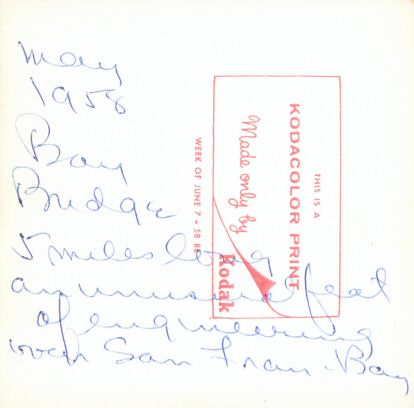 May
1958
Bay
Bridge
5 miles long
an unusual feat
of engineering
over San Fran. Bay
THIS IS A
KODACOLOR PRINT
Made only by
Kodak
WEEK OF JUNE 7 - 58 RE